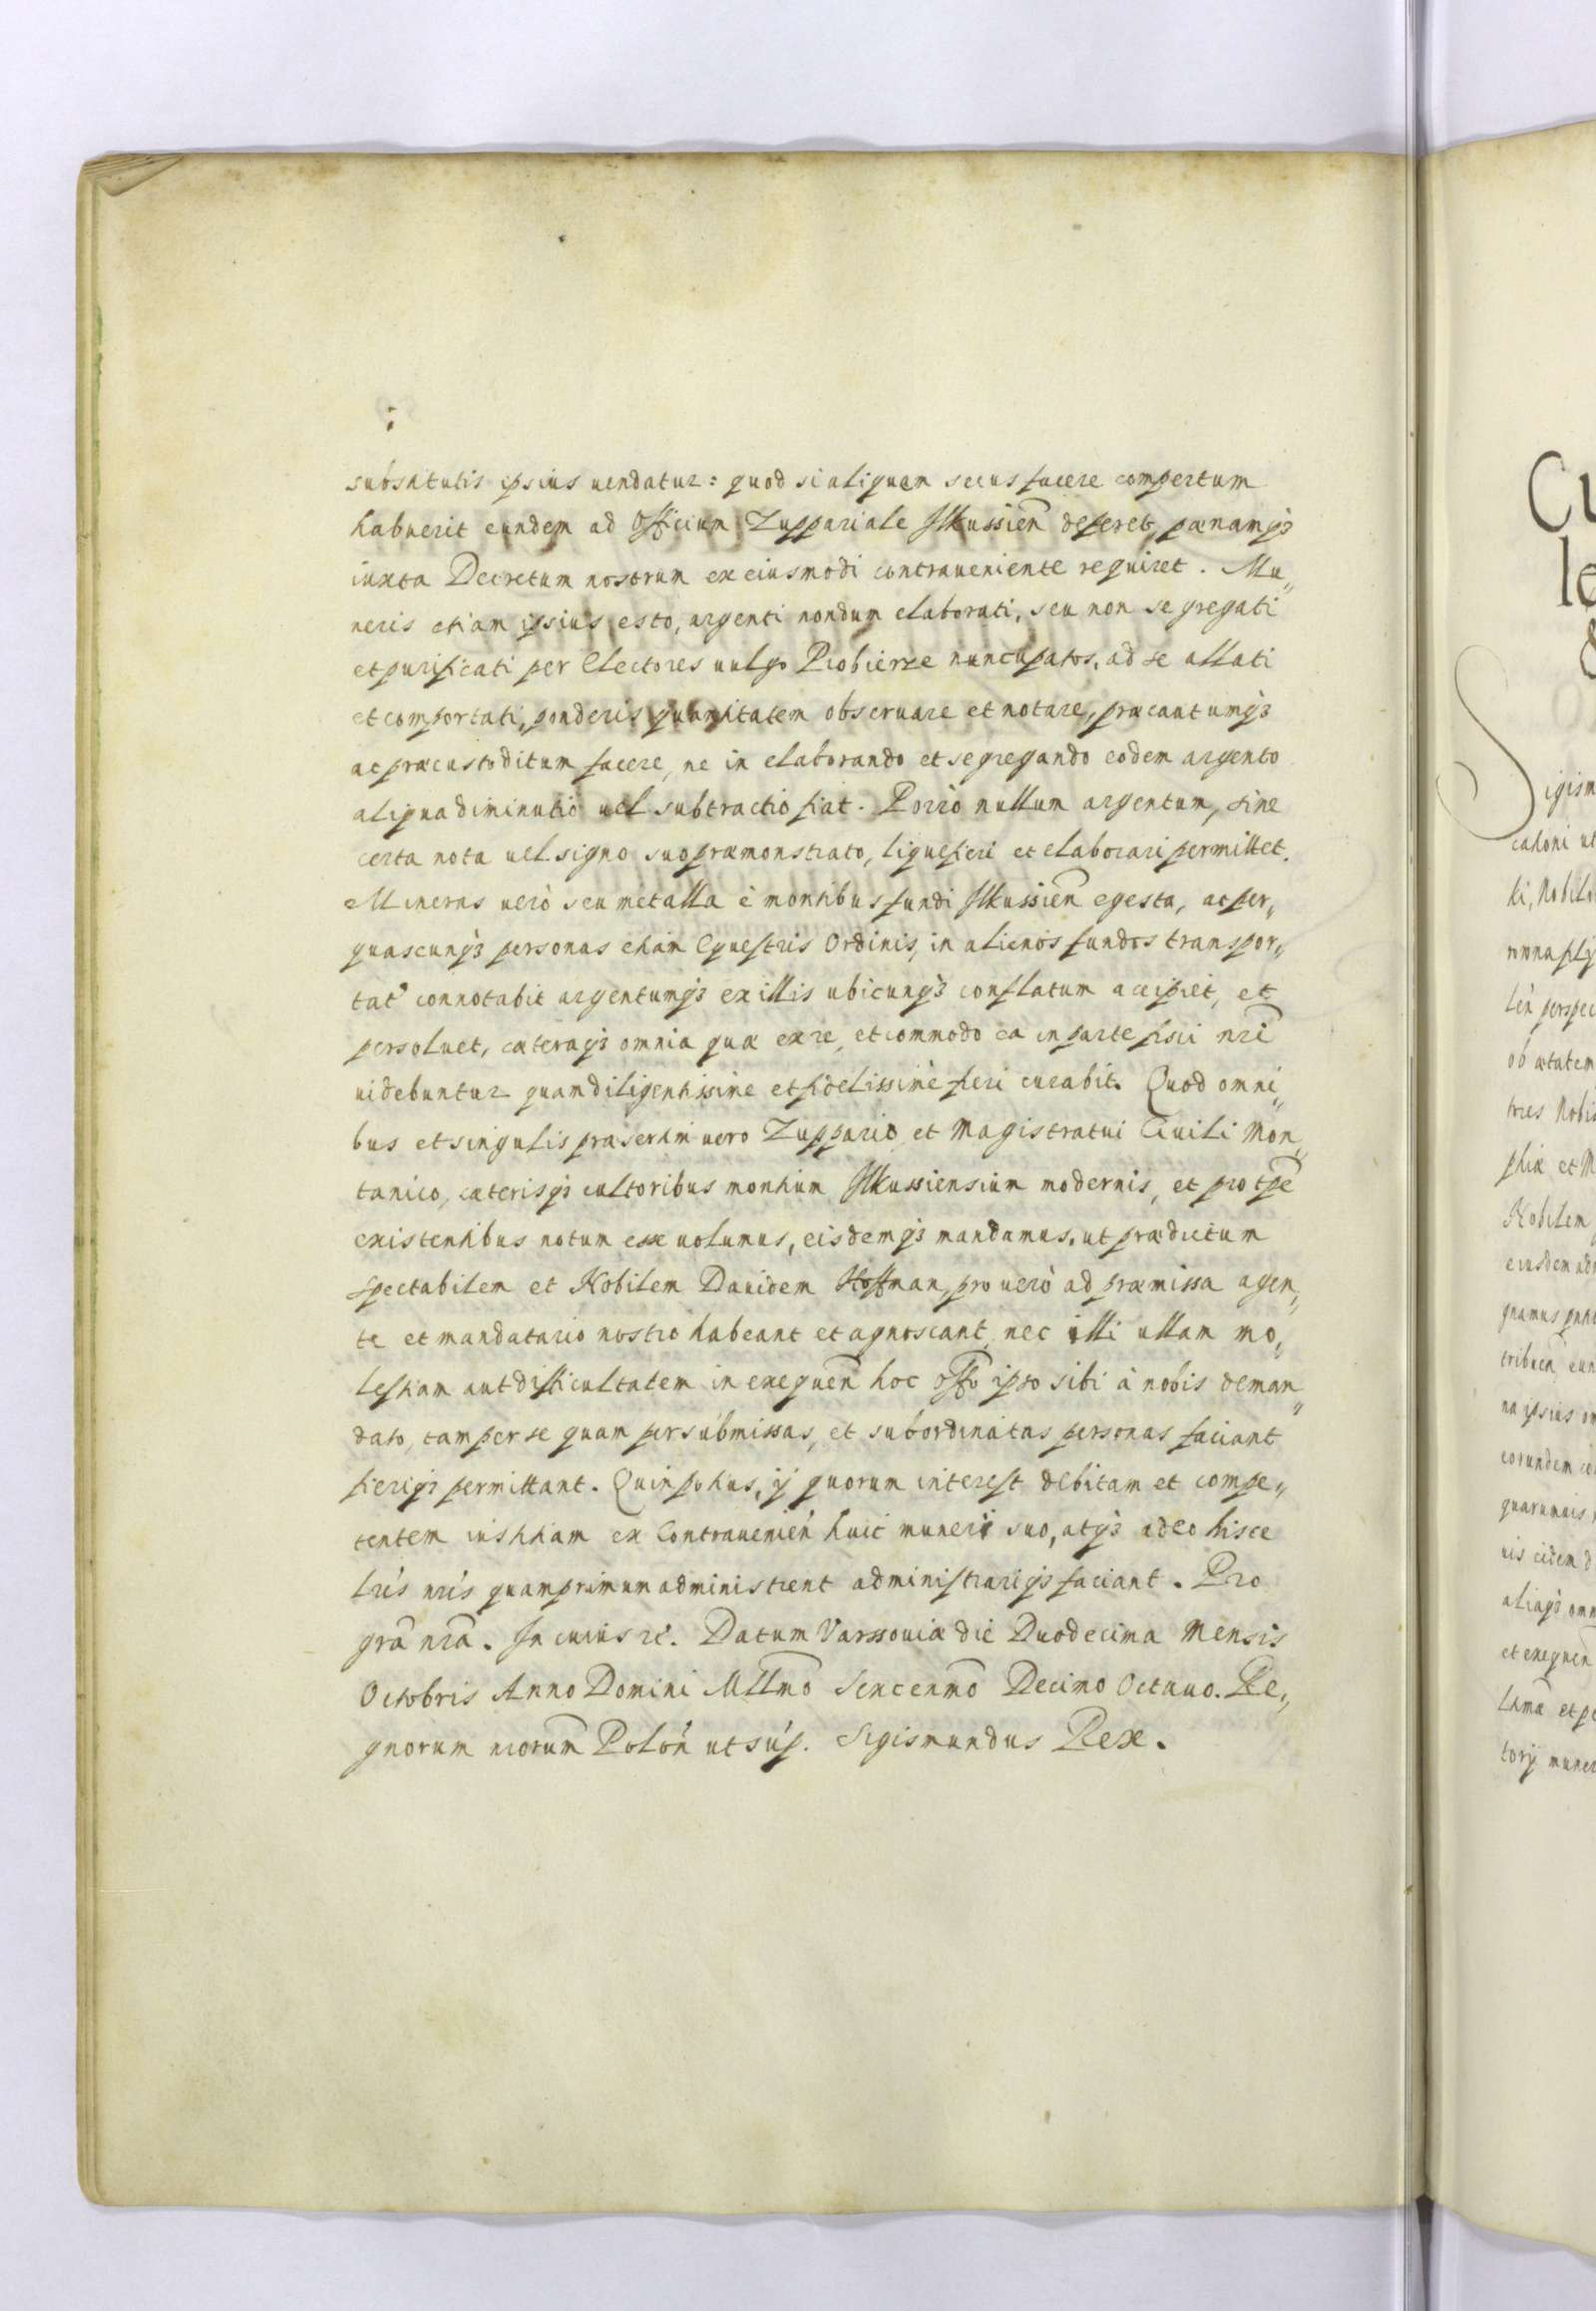 subsitutis ipsius uendatur: quod si aliquem secus facere compertum
habuerit eundem ad Officium Zuppariale Ilkussien̄ deferet, pænamq̃3
iuxta Decretum nostrum ex eiusmodi contraueniente requiret. Mu„
neris etiam ipsius esto, argenti nondum elaborati, seu non segregati
et purificati per Electores uulgo Probierze nuncupatos, ad se allati
et comportati, ponderis quantitatem obseruare et notare, præcautumq̃3
ac præcustoditum facere, ne in elaborando et segregando eodem argento
aliqua diminutio uel subtractio fiat. Porrò nullum argentum, sine
certa nota uel signo suo præmonstrato, liquefieri et elaborari permittet.
Mineras uerò seu metalla è montibus fundi Ilkussien̄ egesta, ac per„
quascunq̃3 personas etiam Equestris Ordinis, in alienos fundos transpor„
tat' connotabit argentumq̃3 ex illis ubicunq̃3 conflatum accipiet, et
persoluet, cæteraq̃3 omnia quæ ex re, et commodo ea in parte fisci nr̄i
uidebuntur quam diligentissime et fidelissimè fieri curabit. Quod omni„
bus et singulis præsertim uero Zuppario et Magistratui Ciuili Mon„
tanico, cæterisq̃3 cultoribus montium Ilkussiensium modernis, et pro tp̄e
existentibus notum esse uolumus, eisdemq̃3 mandamus, ut prædictum
spectabilem et Nobilem Dauidem Hoffman, pro uerò ad præmissa agen„
te et mandatario nostro habeant et agnoscant, nec illi ullam mo„
lestiam aut difficultatem in exequen̄ hoc off̄o ipso sibi à nobis deman„
dato, tam per se quam per submissas, et subordinatas personas faciant
fieriq̃3 permittant. Quin potius, ij quorum interest debitam et compe„
tentem iustitiam ex Contrauenień huic muneri suo, atq̃3 adeo hisce
lr̄is nr̄is quamprimum administrent administrariq̃3 faciant. Pro
gr̄a nr̄a. In cuius rẽ. Datum Varssouiæ die Duodecima Mensis
Octobris Anno Domini Mill̄mo Sexcen̄mo Decimo Octauo. Re„
gnorum nr̄orum Polon̄ ut sup̄. Sigismundus Rex.